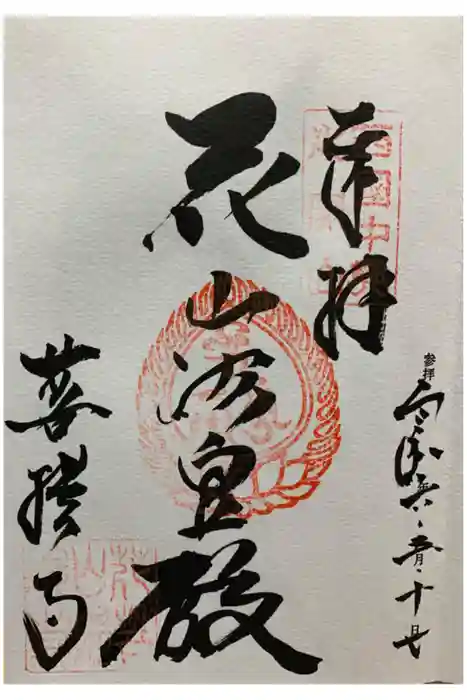 奉拝
参拝 令和六年五月十七日
花山法皇殿
菩提寺